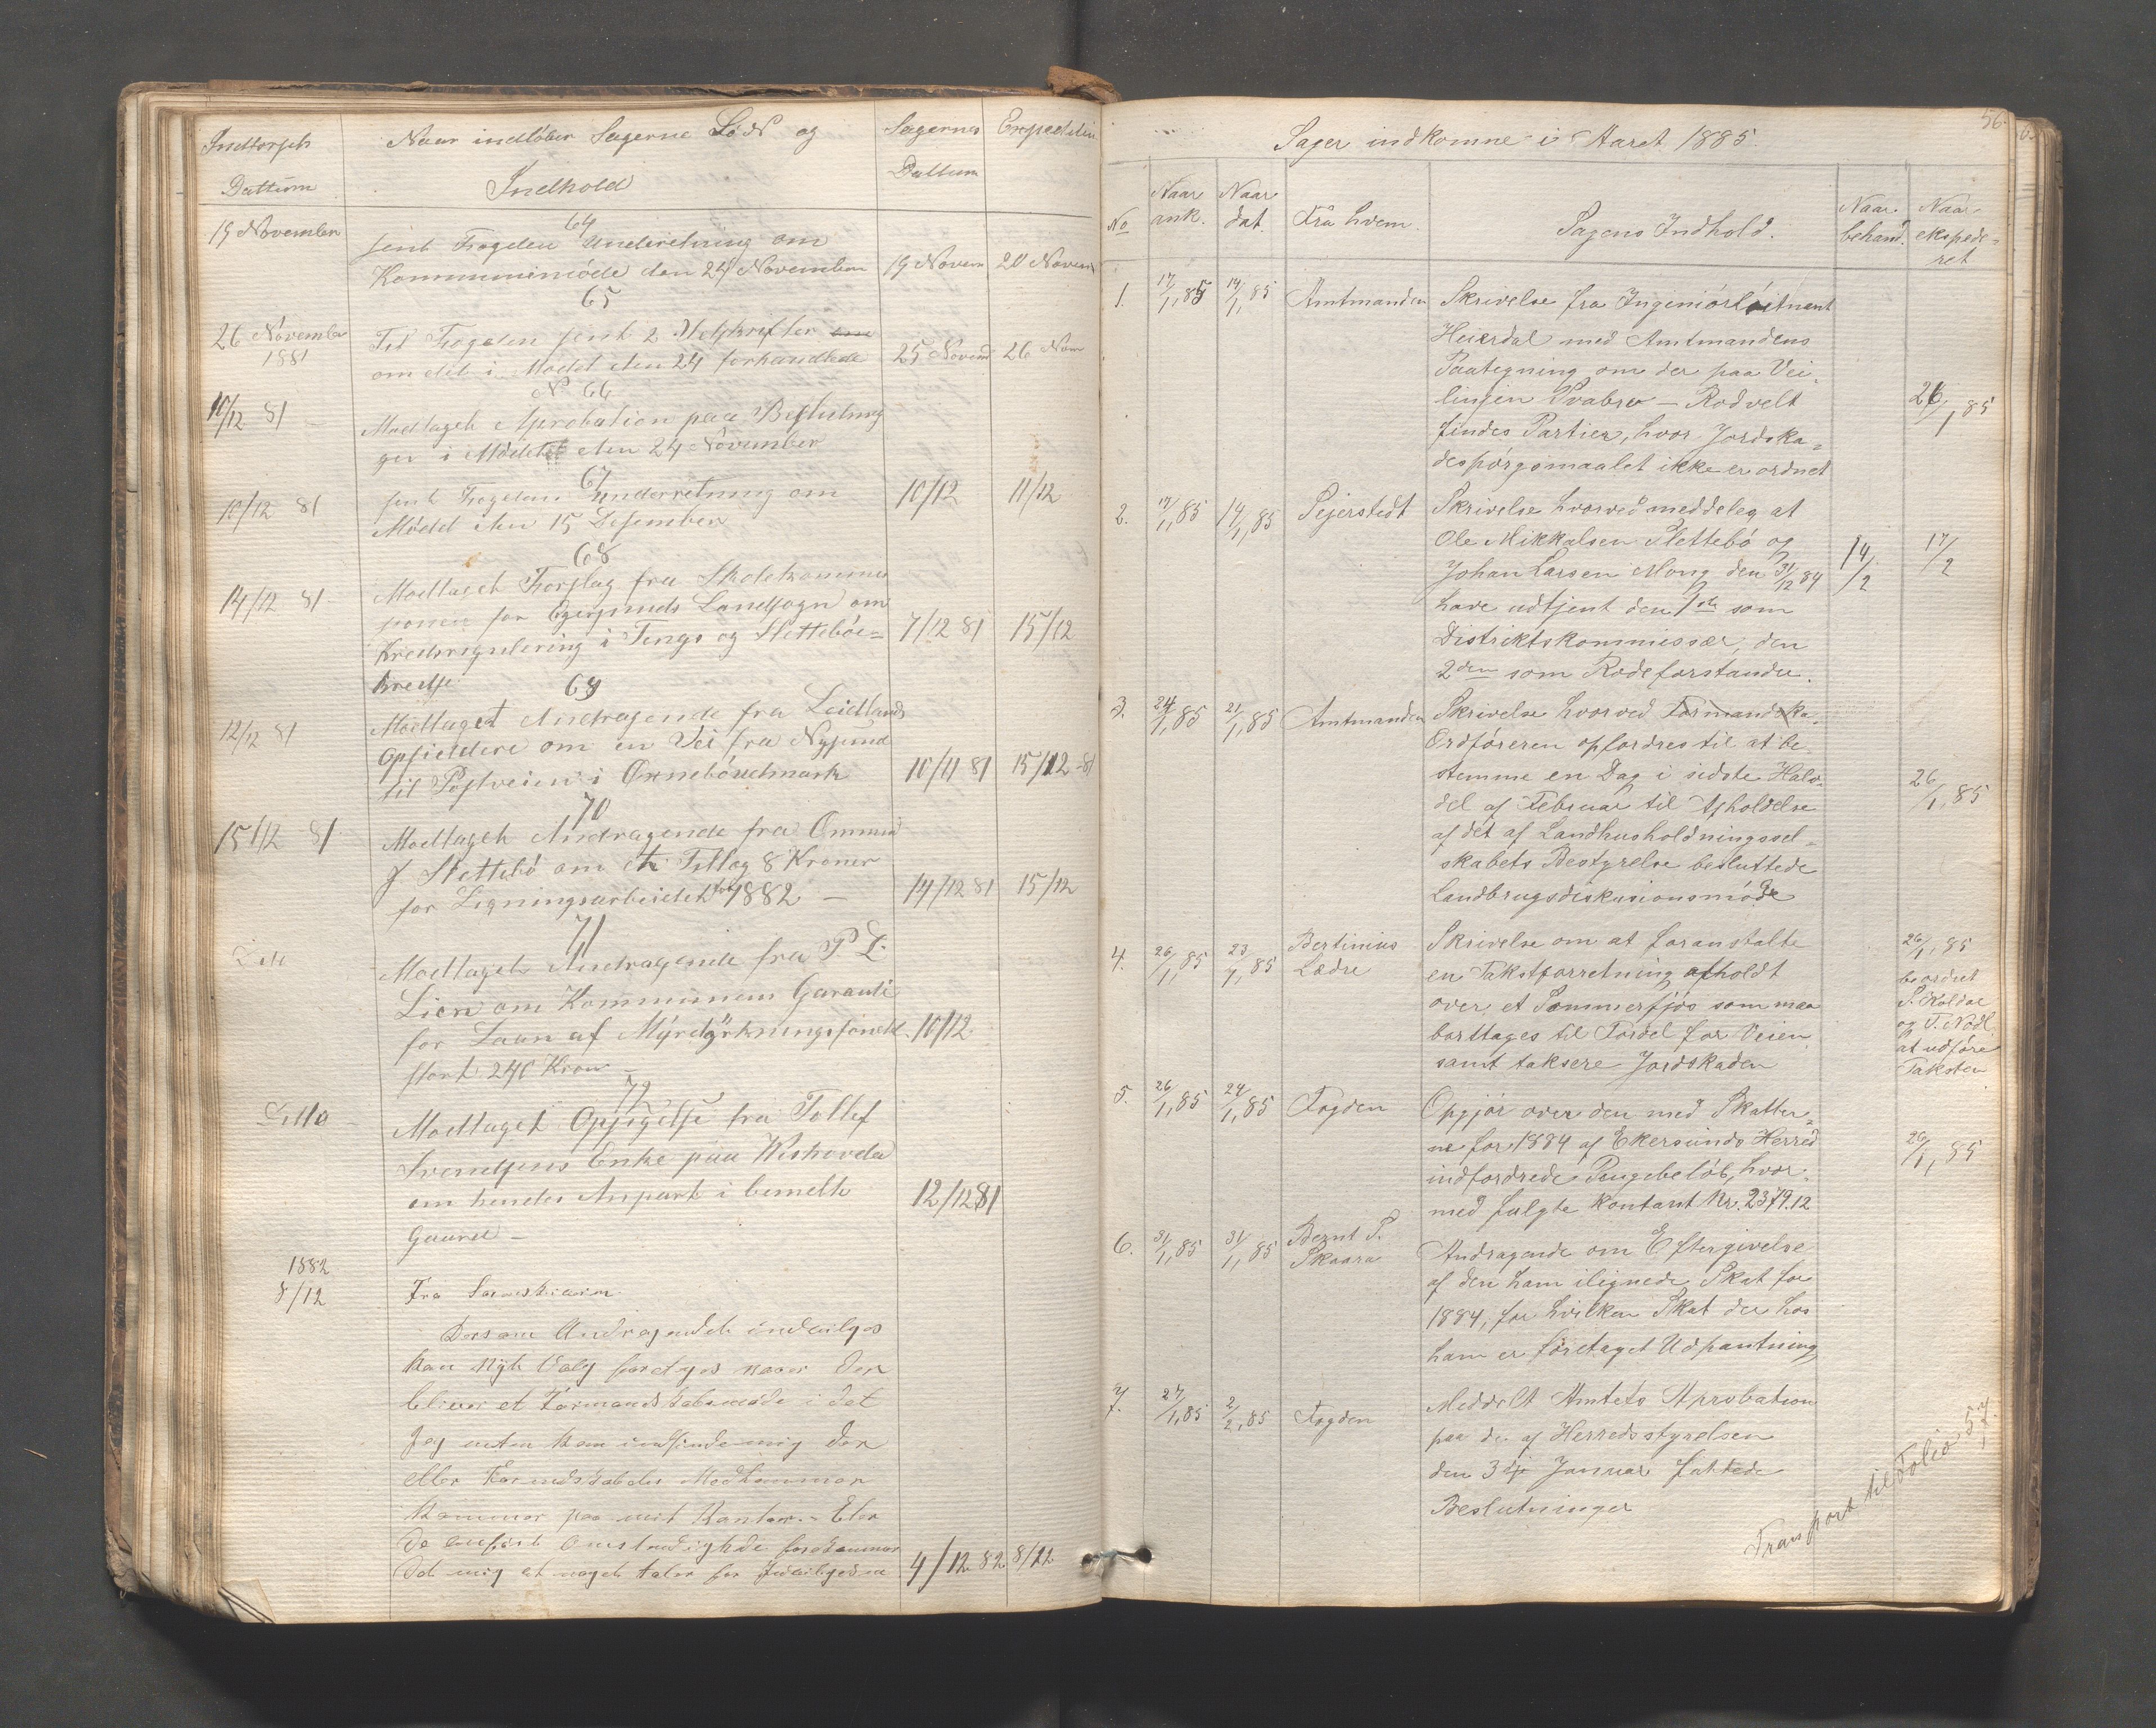 Indtørsels
Naar indløber Sagerne Lød og
Sagernes
Expedition
Dattum
Indhold
Dattum
64
19 November
sent Fogden Underretning om
Kommunemøde den 24 November
19 Novem
20 Novem
65
26 November
1881
Til Fogden sent 2 Udskrifter
om det i Mødet den 24 forhandlede
25 Novemb
26 Nov
No 66
10/12 81
Modtaget Aprobation paa Beslutning
ger i Mødet den 24 November
67
10/12 81
sent Fogden underretning om
Mødet den 15 Desember
10/12
11/12
68
14/12 81
Modtaget Forslag fra Skolekommis
sonen for Egersunds Landsogn om
Kredsregulering i Tengs og Slettebøe-
Kredse
7/12 81
15/12
69
12/12 81
Modtaget Andragende fra Leidlands
Opsiddere om en Vei fra Nysund
til Postveien i Oxnebøudmark
10/11 81
15/12 81
70
15/12 81
Modtaget Andragende fra Ommund
J Slettebø om et Tillæg 8 Kroner
for Ligningsarbeidet for 1882 —
14/12 81
15/12
71
Modtaget Andragende fra P L
Lien om Kommunens Garanti
for Laan af Myrdyrkningsfondet
stort 240 Kroner —
10/12
72
Ditto
Modtaget Opsigelse fra Tollef
Svendsens Enke paa
om hendes Anpart i bemelte
Gaard —
12/12 81
1882
8/12
Fra
Dersom Andragendet indvilges
kan nyt Valg foretages naar der
bliver et Formandskabsmøde i det
Jeg enten kan indfinde mig der
eller Formandskabets Medlemmer
kommer paa mit Kontor. –
Det mig at noget taler for
4/12 82
8/12
56.
Sager indkomne i Aaret 1885.
No
Naar
ank.
Naar
dat.
Fra hvem.
Sagens Indhold.
Naar
behand.
Naar
ekspede-
ret
1.
17/1, 85
14/1, 85
Amtmanden
Skrivelse fra Ingeniørløitnant
Heierdal med Amtmandens
Paategning om der paa Vei-
linjen Svabrø — Rodvelt
findes Partier, hvor Jordska-
despørgsmaalet ikke er ordnet
26/1, 85
2.
17/1, 85
14/1, 85
Sejerstedt
Skrivelse hvorved meddeles at
Ole Mikkalsen Slettebø og
Johan Larsen Mong den 31/12 84
have udtjent den 1ste som
Distriktskommissær, den
2den som Rodeforstander.
14/2
17/2
3.
24/1, 85
21/1, 85
Amtmanden
Skrivelse hvorved Formandska-
Ordføreren opfordres til at be-
stemme en Dag i sidste Halv-
del af Februar til Afholdelse
af det af Landhusholdningssel-
skabets Bestyrelse besluttede
Landbrugsdiskusionsmøde
26/1, 85
4.
26/1, 85
23/1, 85
Bertinius
Lædre
Skrivelse om at foranstalte
en Takstforretning afholdt
over et Sommerfjøs som maa
borttages til Fordel for Veien
samt taksere Jordskaden
26/1, 85
beordret
S. Koldal
og T. Nodl.
at udføre
Taksten
5.
26/1, 85
24/1, 85
Fogden
Opgjør over den med Skatter-
ne for 1884 af Ekersunds Herred
indfordrede Pengebeløb, hvor-
med fulgte kontant Kr. 2379.12
26/1, 85
6.
31/1, 85
31/1, 85
Bernt P.
Skaara
Andragende om Eftergivelse
af den ham ilignede Skat for
1884, for hvilken Skat der hos
ham er foretaget Udpantning
7.
27/1, 85
2/2, 85
Fogden
Meddelt Amtets Aprobation
paa de af Herredsstyrelsen
den 3dje Januar fattede
Beslutninger
Transport til Folio 57